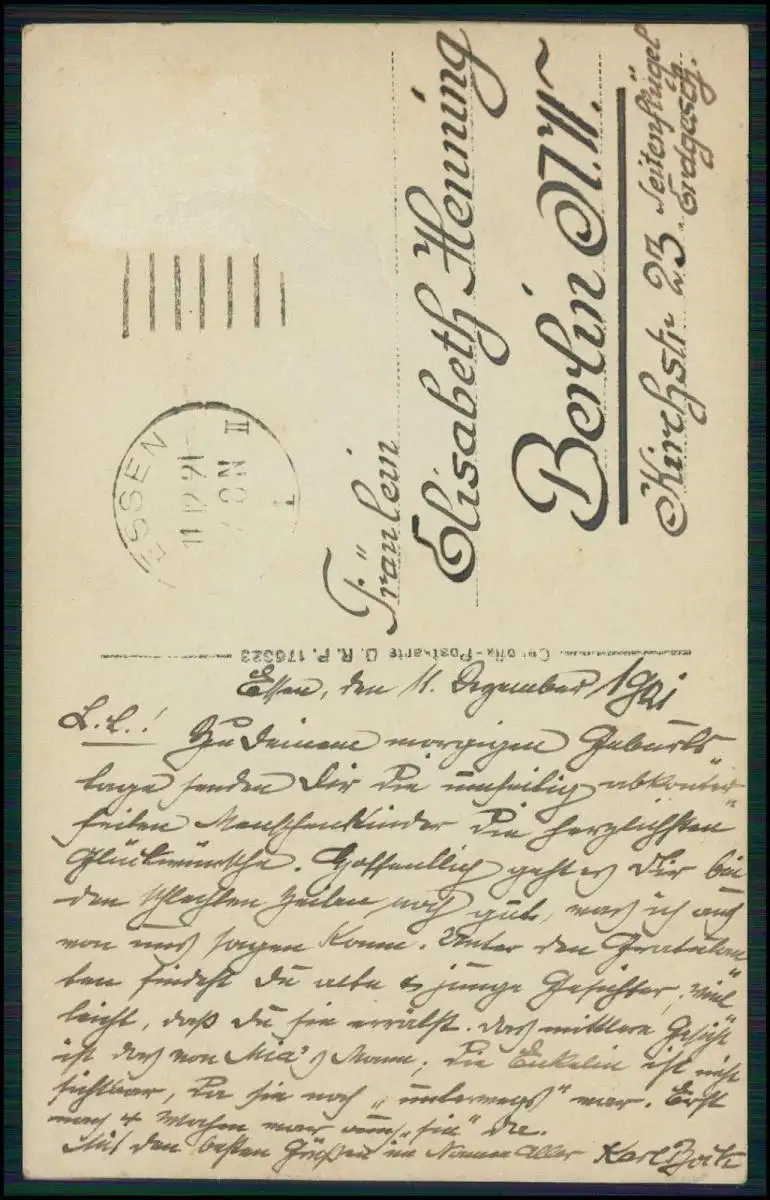 Fräulein
Elisabeth Henning
Berlin N.W.
Kirchstr. 23 Seitenflügel
Erdgesch.
ESSEN
11.12.21
7-8 N II
-Postkarte D. R. P. 176323
Essen, den 11. Dezember 1921
L. E.!
Zu Deinem morgigen Geburts
tage senden Dir die umseitig abkonter-
feiten Menschenkinder die herzlichsten
Glückwünsche. Hoffentlich geht es Dir bei
den schlechten Zeiten noch gut, was ich auch
von uns sagen kann. Unter den Gratulan
ten findest Du alte & junge Gesichter, viel
leicht, daß Du sie errätst. Das mittlere Gesicht
ist das von Mia's Mann; die Enkelin ist nicht
sichtbar, da sie noch „unterwegs" war. Erst
nach 4 Wochen war auch „sie" da.
Mit den besten Grüßen im Namen aller Karl